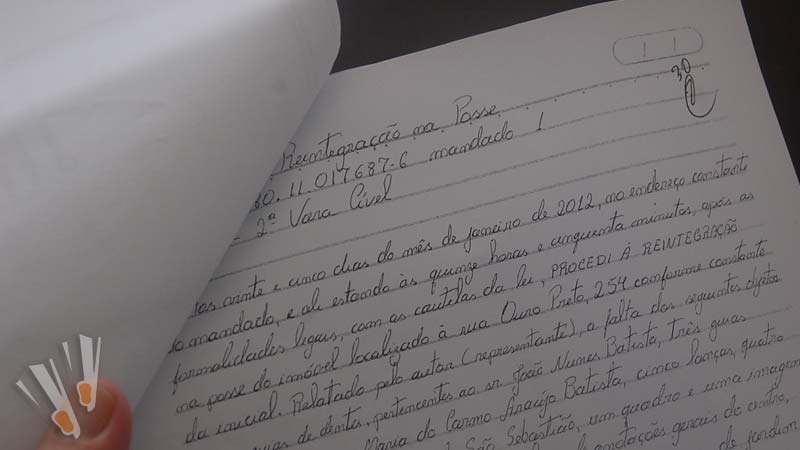 11
30
Reintegração na Posse
80.11.017687-6 mandado 1
- 2ª Vara Cível
Aos vinte e cinco dias do mês de janeiro de 2012, no endereço constante
do mandado, e ali estando às quinze horas e cinquenta minutos, após as
formalidades legais, com as cautelas da lei, PROCEDI À REINTEGRAÇÃO
na posse do imóvel localizado à rua Ouro Preto, 254 conforme constante
da inicial. Relatado pelo autor (representante), a falta dos seguintes objetos
guias de dentes, pertencentes ao sr João Nunes Batista, três guias
Maria do Carmo Araújo Batista, cinco lanças, quatro
São Sebastião, um quadro e uma imagem
anotações gerais do centro,
de jardim